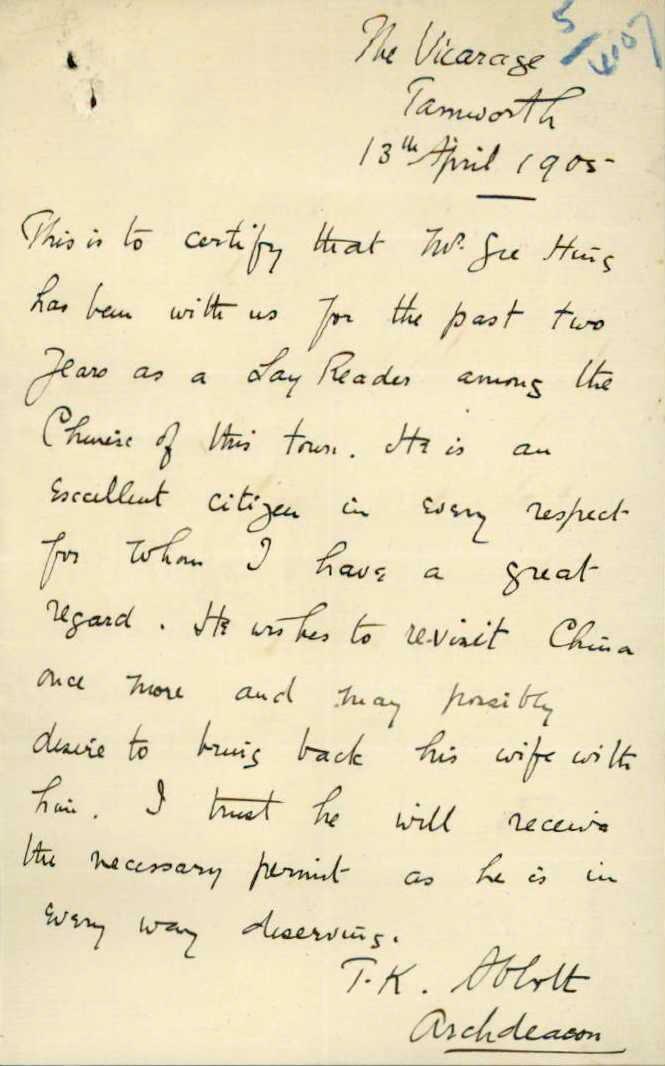 The Vicarage
Tamworth
13th April 1905
This is to certify that Mr. Gee Hing
has been with us for the past two
years as a Lay Reader among the
Chinese of this town. He is an
excellent citizen in every respect
for whom I have a great
regard. He wishes to re-visit China
once more and may possibly
desire to bring back his wife with
him. I trust he will receive
the necessary permit as he is in
every way deserving.
T. K. Abbott
Archdeacon